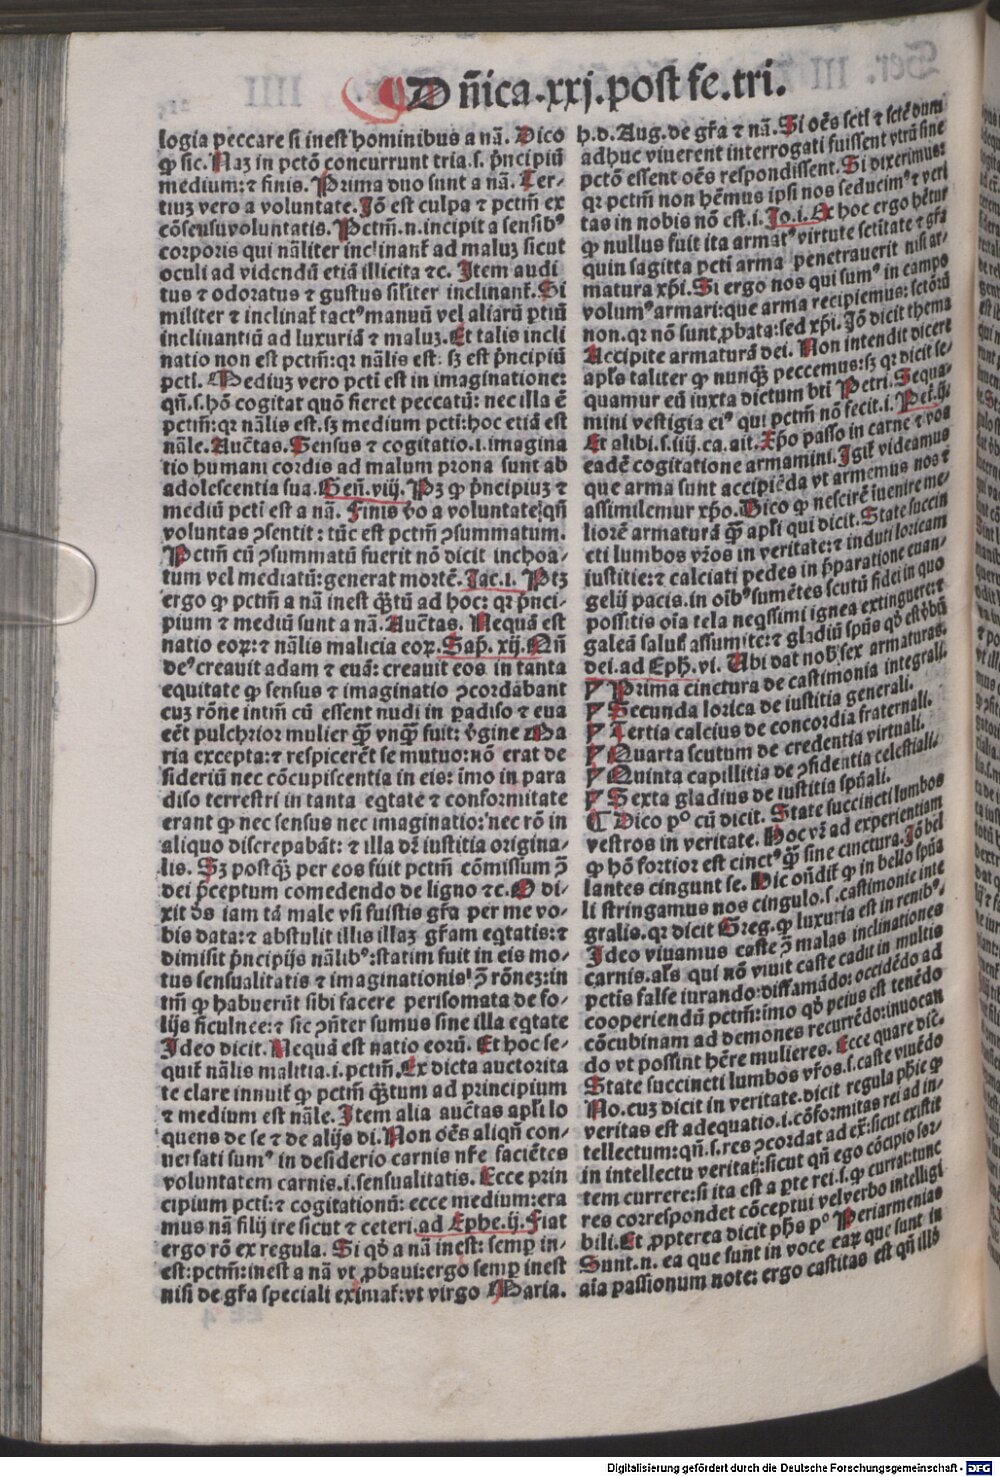 Dñica.xxj.post fe.tri.
logia peccare si inest hominibus a nã. Dico
ꝙ sic. Naʒ in pctõ concurrunt tria.s. p̃ncipiũ
medium: ⁊ finis. Prima duo sunt a nã. Ter-
tiuʒ vero a voluntate. Jõ est culpa ⁊ pctm̃ ex
cõsensu voluntatis. Pctm̃.n. incipit a sensibꝰ
corporis qui nãliter inclinant̃ ad maluʒ sicut
oculi ad videndũ etiã illicita ⁊c. Item audi
tus ⁊ odoratus ⁊ gustus sil̃iter inclinant̃. Si
militer ⁊ inclinat̃ tactꝰ manuũ vel aliarũ ptiũ
inclinantiũ ad luxuriã ⁊ maluʒ. Et talis incli
natio non est pctm̃: qꝛ nãlis est: sʒ est p̃ncipiũ
pcti. Mediuʒ vero pcti est in imaginatione:
qñ.s. hõ cogitat quõ fieret peccatũ: nec illa ẽ
pctm̃: qꝛ nãlis est. sʒ medium pcti: hoc etiã est
nãle. Auc̃tas. Sensus ⁊ cogitatio.i. imagina
tio humani cordis ad malum prona sunt ab
adolescentia sua. Geñ.viij. Pʒ ꝙ p̃ncipiuʒ ⁊
mediũ pcti est a nã. Finis ṽo a voluntate: qñ
voluntas ꝯsentit: tũc est pctm̃ ꝯsummatum.
Pctm̃ cũ ꝯsummatũ fuerit nõ dicit inchoa-
tum vel mediatũ: generat mortẽ. Jac.i. Ptʒ
ergo ꝙ pctm̃ a nã inest q̃ʒtũ ad hoc: qꝛ p̃nci-
pium ⁊ mediũ sunt a nã. Auc̃tas. Nequã est
natio eoꝝ: ⁊ nãlis malicia eoꝝ. Sap̃. xij. Nñ
deꝰ creauit adam ⁊ euã: creauit eos in tanta
equitate ꝙ sensus ⁊ imaginatio ꝯcordabant
cuʒ rõne intm̃ cũ essent nudi in padiso ⁊ eua
eẽt pulchrior mulier q̃ʒ vnq̃ʒ fuit: ṽgine Ma
ria excepta: ⁊ respicerẽt se mutuo: nõ erat de
sideriũ nec cõcupiscentia in eis: imo in para
diso terrestri in tanta eqtate ⁊ conformitate
erant ꝙ nec sensus nec imaginatio: nec rõ in
aliquo discrepabãt: ⁊ illa dʒ iustitia origina-
lis. Sʒ postq̃ʒ per eos fuit pctm̃ cõmissum ꝯ̃
dei p̃ceptum comedendo de ligno ⁊c. O di-
xit dñs iam tã male vsi fuistis gr̃a per me vo-
bis data: ⁊ abstulit illis illaʒ gr̃am eqtatis: ⁊
dimisit p̃ncipijs nãlibꝰ: statim fuit in eis mo-
tus sensualitatis ⁊ imaginationis ꝯ̃ rõneʒ: in
tm̃ ꝙ habuerũt sibi facere perisomata de fo-
lijs ficulnee: ⁊ sic ꝯñter sumus sine illa eqtate
Ideo dicit. Nequã est natio eorũ. Et hoc se-
quit̃ nãlis malitia.i. pctm̃. Ex dicta auctorita
te clare innuit̃ ꝙ pctm̃ q̃ʒtum ad principium
⁊ medium est nãle. Item alia auc̃tas apl̃i lo
quens de se ⁊ de alijs di. Non oẽs aliqñ con-
uersati sumꝰ in desiderio carnis nr̃e faciẽtes
voluntatem carnis.i. sensualitatis. Ecce prin
cipium pcti: ⁊ cogitationũ: ecce medium: era
mus nã filij ire sicut ⁊ ceteri. ad Ephe.ij. Fiat
ergo rõ ex regula. Si qḋ a nã inest: semp in-
est: pctm̃: inest a nã vt ꝓbaui: ergo semp inest
nisi de gr̃a speciali eximat̃: vt virgo Maria.
h.d. Aug. de gr̃a ⁊ nã. Si oẽs scti ⁊ sctẽ dum
adhuc viuerent interrogati fuissent vtrũ sine
pctõ essent oẽs respondissent. Si dixerimus:
qꝛ pctm̃ non hẽmus ipsi nos seducimꝰ ⁊ veri
tas in nobis nõ est.i. Jo.i. Ex hoc ergo hẽtur
ꝙ nullus fuit ita armatꝰ virtute sctitate ⁊ gr̃a
quin sagitta pcti arma penetrauerit nisi ar-
matura xp̃i. Si ergo nos qui sumꝰ in campo
volumꝰ armari: que arma recipiemus: sctõrũ
non. qꝛ nõ sunt ꝓbata: sed xp̃i. Jõ dicit thema
Accipite armaturã dei. Non intendit dicere
apl̃s taliter ꝙ nunq̃ʒ peccemus: sʒ qꝛ dicit se-
quamur eũ iuxta dictum bti Petri. Sequa-
mini vestigia eiꝰ qui pctm̃ nõ fecit.i. Pet.ij.
Et alibi.s.iiij.ca.ait. Xp̃o passo in carne ⁊ vos
eadẽ cogitatione armamini. Igit̃ videamus
que arma sunt accipiẽda vt armemus nos ⁊
assimilemur xp̃o. Dico ꝙ nescirẽ inuenire me-
liorẽ armaturã q̃ʒ apl̃i qui dicit. State succin
cti lumbos vr̃os in veritate: ⁊ induti loricam
iustitie: ⁊ calciati pedes in p̃paratione euan-
gelij pacis. in oĩbꝰ sumẽtes scutũ fidei in quo
possitis oĩa tela neq̃ssimi ignea extinguere: ⁊
galeã salut̃ assumite: ⁊ gladiũ spũs qḋ est ṽbũ
dei. ad Eph̃.vi. Ubi dat nobꝭ sex armaturas.
Prima cinctura de castimonia integrali.
Secunda lorica de iustitia generali.
Tertia calcius de concordia fraternali.
Quarta scutum de credentia virtuali.
Quinta capillitia de ꝯfidentia celestiali.
Sexta gladius de iustitia spũali.
Dico pº cũ dicit. State succincti lumbos
vestros in veritate. Hoc vʒ ad experientiam
ꝙ hõ fortior est cinctꝰ q̃ʒ sine cinctura. Jõ bel
lantes cingunt se. Hic oñdit̃ ꝙ in bello spũa
li stringamus nos cingulo.s. castimonie inte
gralis. qꝛ dicit Greg. ꝙ luxuria est in renibꝰ.
Ideo viuamus caste ꝯ̃ malas inclinationes
carnis. al̃s qui nõ viuit caste cadit in multis
pctis false iurando: diffamãdo: occidẽdo ad
cooperiendũ pctm̃: imo qḋ peius est tenẽdo
cõcubinam ad demones recurrẽdo: inuocan
do vt possint hẽre mulieres. Ecce quare dic̃.
State succincti lumbos vr̃os.s. caste viuẽdo
No. cuʒ dicit in veritate. dicit regula ph̃ie ꝙ
veritas est adequatio.i. cõformitas rei ad in-
tellectum: qñ.s. res ꝯcordat ad ex̃: sicut existit
in intellectu veritat̃: sicut qñ ego cõcipio sor-
tem currere: si ita est a parte rei.s. ꝙ currat: tunc
res correspondet cõceptui vel verbo intelligi
bili. Et ꝓpterea dicit ph̃s pº Periarmenias
Sunt.n. ea que sunt in voce earꝝ que sunt in
aĩa passionum note: ergo castitas est qñ illd̃
Digitalisierung gefördert durch die Deutsche Forschungsgemeinschaft - DFG